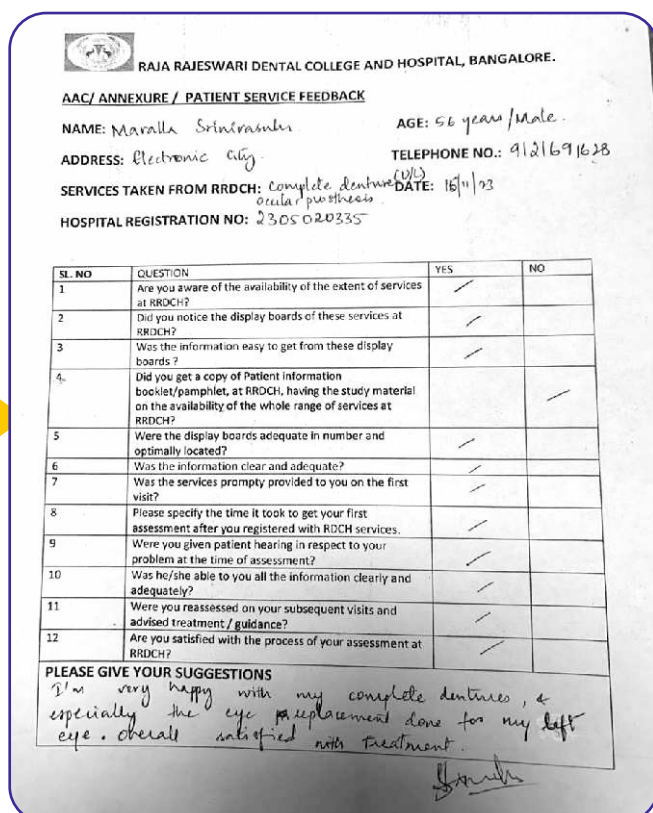 RAJA RAJESWARI DENTAL COLLEGE AND HOSPITAL, BANGALORE.
AAC/ ANNEXURE / PATIENT SERVICE FEEDBACK
NAME: Maralla Srinivasulu
AGE: 56 years/Male.
ADDRESS: Electronic City.
TELEPHONE NO.: 9121691628
SERVICES TAKEN FROM RRDCH: Complete denture (U/L)
ocular prosthesis
DATE: 16/11/23
HOSPITAL REGISTRATION NO: 2305020335
SL. NO QUESTION YES NO
1 Are you aware of the availability of the extent of services
at RRDCH?
2 Did you notice the display boards of these services at
RRDCH?
3 Was the information easy to get from these display
boards ?
4. Did you get a copy of Patient information
booklet/pamphlet, at RRDCH, having the study material
on the availability of the whole range of services at
RRDCH?
5 Were the display boards adequate in number and
optimally located?
6 Was the information clear and adequate?
7 Was the services prompty provided to you on the first
visit?
8 Please specify the time it took to get your first
assessment after you registered with RDCH services.
9 Were you given patient hearing in respect to your
problem at the time of assessment?
10 Was he/she able to you all the information clearly and
adequately?
11 Were you reassessed on your subsequent visits and
advised treatment / guidance?
12 Are you satisfied with the process of your assessment at
RRDCH?
PLEASE GIVE YOUR SUGGESTIONS
I'm very happy with my complete dentures, &
especially the eye replacement done for my left
eye. Overall satisfied with treatment.